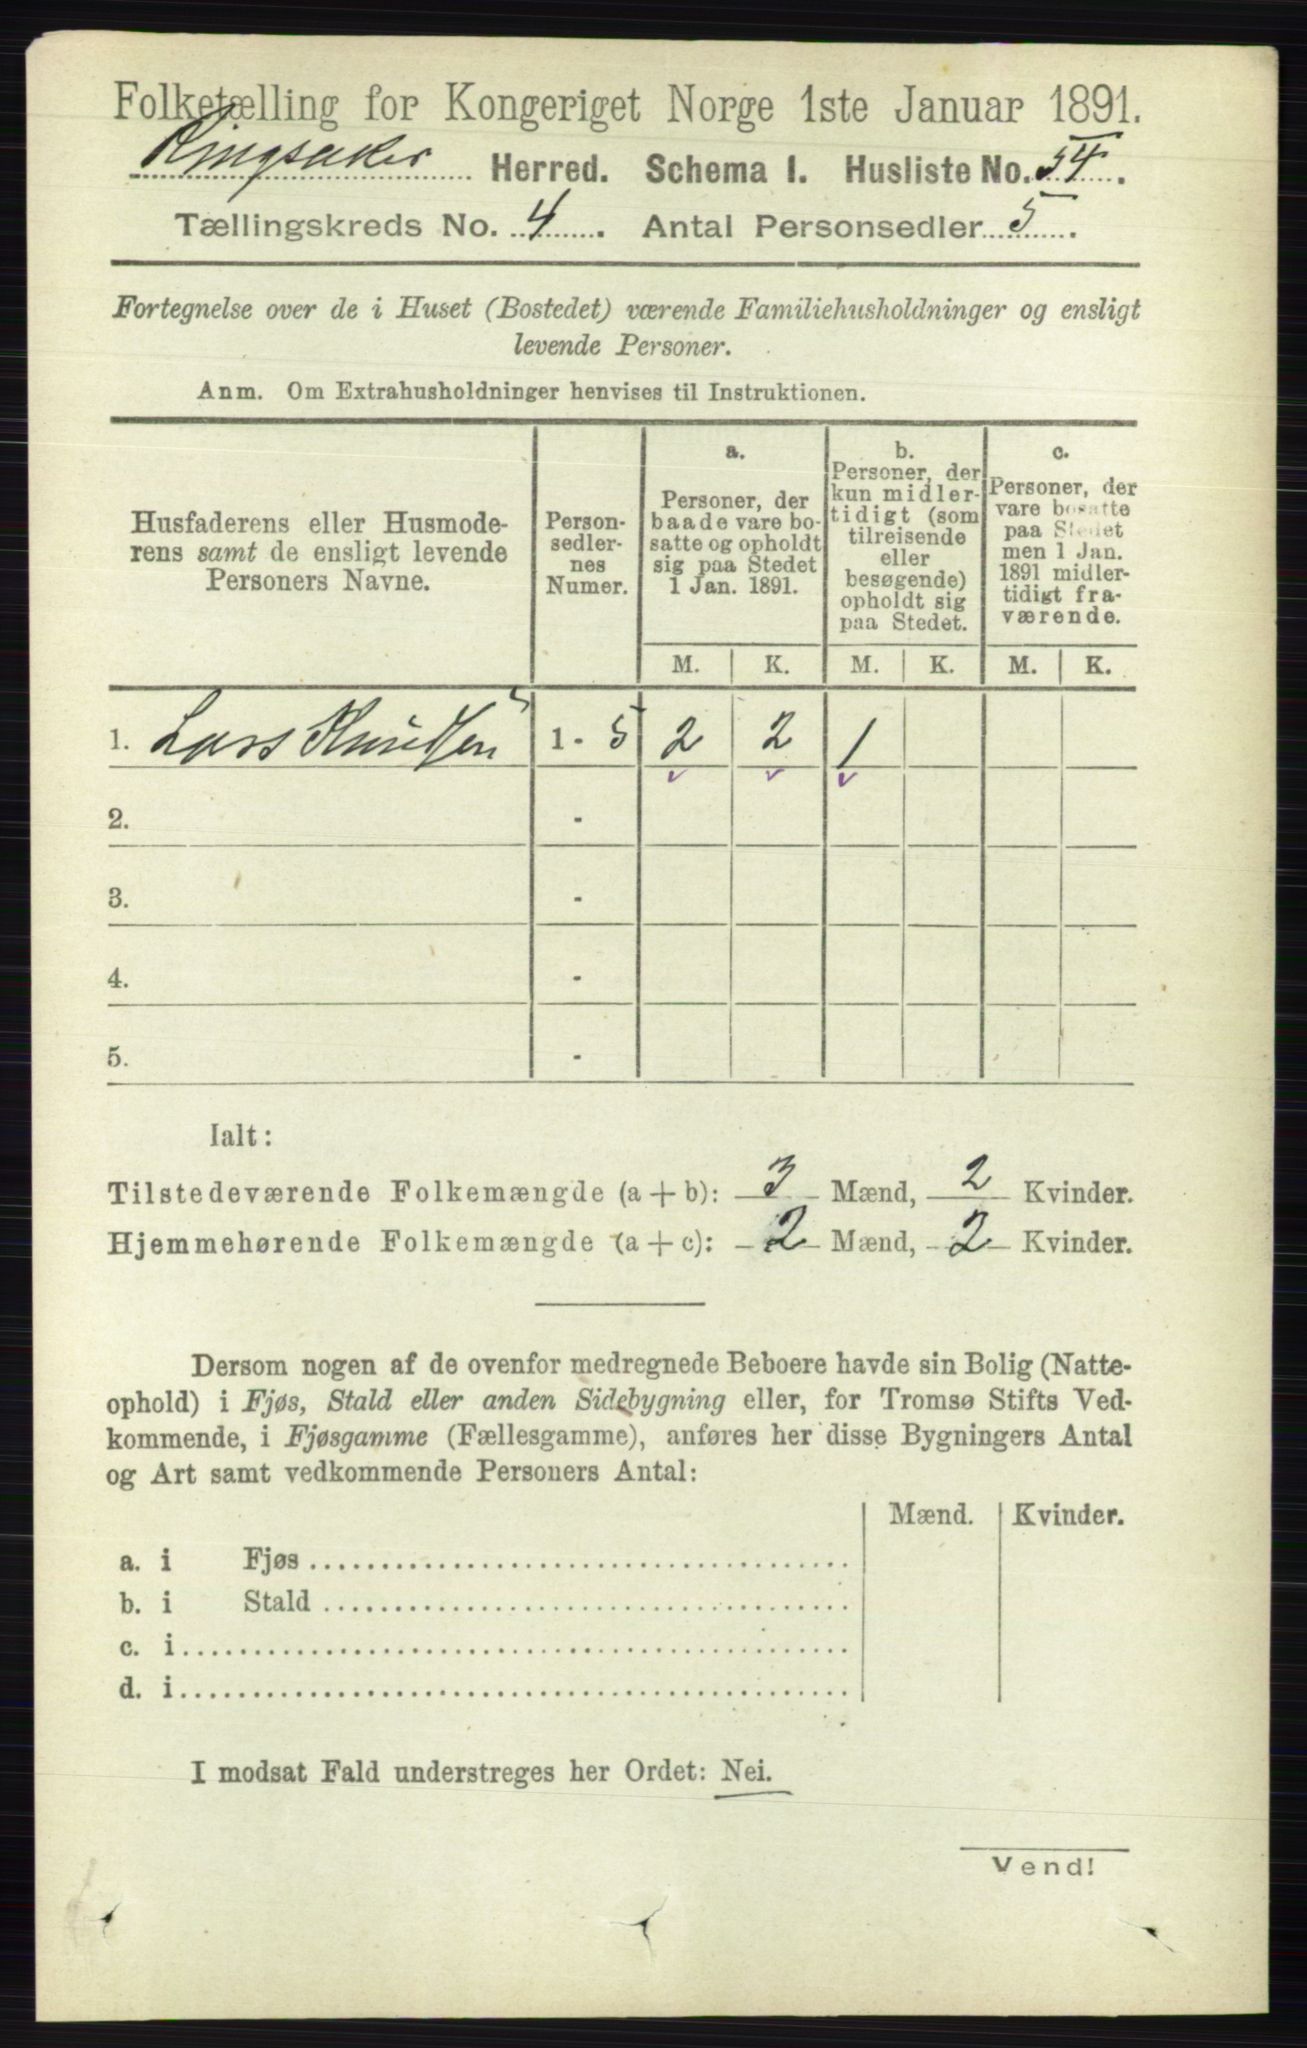 Folketælling for Kongeriget Norge 1ste Januar 1891.
Ringsaker Herred. Schema I. Husliste No. 54.
Tællingskreds No. 4. Antal Personsedler 5.
Fortegnelse over de i Huset (Bostedet) værende Familiehusholdninger og ensligt
levende Personer.
Anm. Om Extrahusholdninger henvises til Instruktionen.
Husfaderens eller Husmode-
rens samt de ensligt levende
Personers Navne.
Person-
sedler-
nes
Numer.
a.
Personer, der
baade vare bo-
satte og opholdt
sig paa Stedet
1 Jan. 1891.
b.
Personer, der
kun midler-
tidigt (som
tilreisende
eller
besøgende)
opholdt sig
paa Stedet.
c.
Personer, der
vare bosatte
paa Stedet
men 1 Jan.
1891 midler-
tidigt fra-
værende.
M. K. M. K. M. K.
1. Lars Knudsen 1 - 5 2 2 1
2. -
3. -
4. -
5. -
Ialt:
Tilstedeværende Folkemængde (a + b): 3 Mænd, 2 Kvinder.
Hjemmehørende Folkemængde (a + c): 2 Mænd, 2 Kvinder.
Dersom nogen af de ovenfor medregnede Beboere havde sin Bolig (Natte-
ophold) i Fjøs, Stald eller anden Sidebygning eller, for Tromsø Stifts Ved-
kommende, i Fjøsgamme (Fællesgamme), anføres her disse Bygningers Antal
og Art samt vedkommende Personers Antal:
Mænd. Kvinder.
a. i Fjøs
b. i Stald
c. i
d. i
I modsat Fald understreges her Ordet: Nei.
Vend!